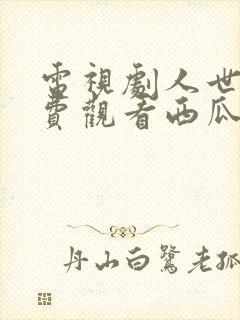 電視劇人世
費觀看西瓜
丹山白鷺老孤